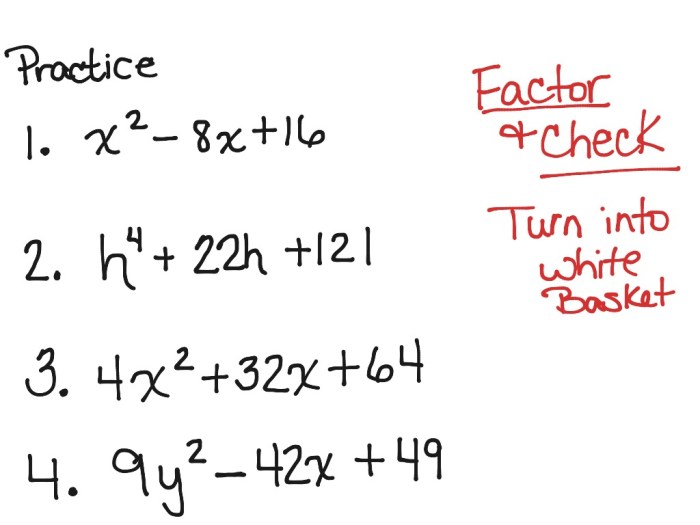 Practice
1. x² - 8x + 16
2. h⁴ + 22h + 121
3. 4x² + 32x + 64
4. 9y² - 42x + 49
Factor
& Check
Turn into
white
Basket